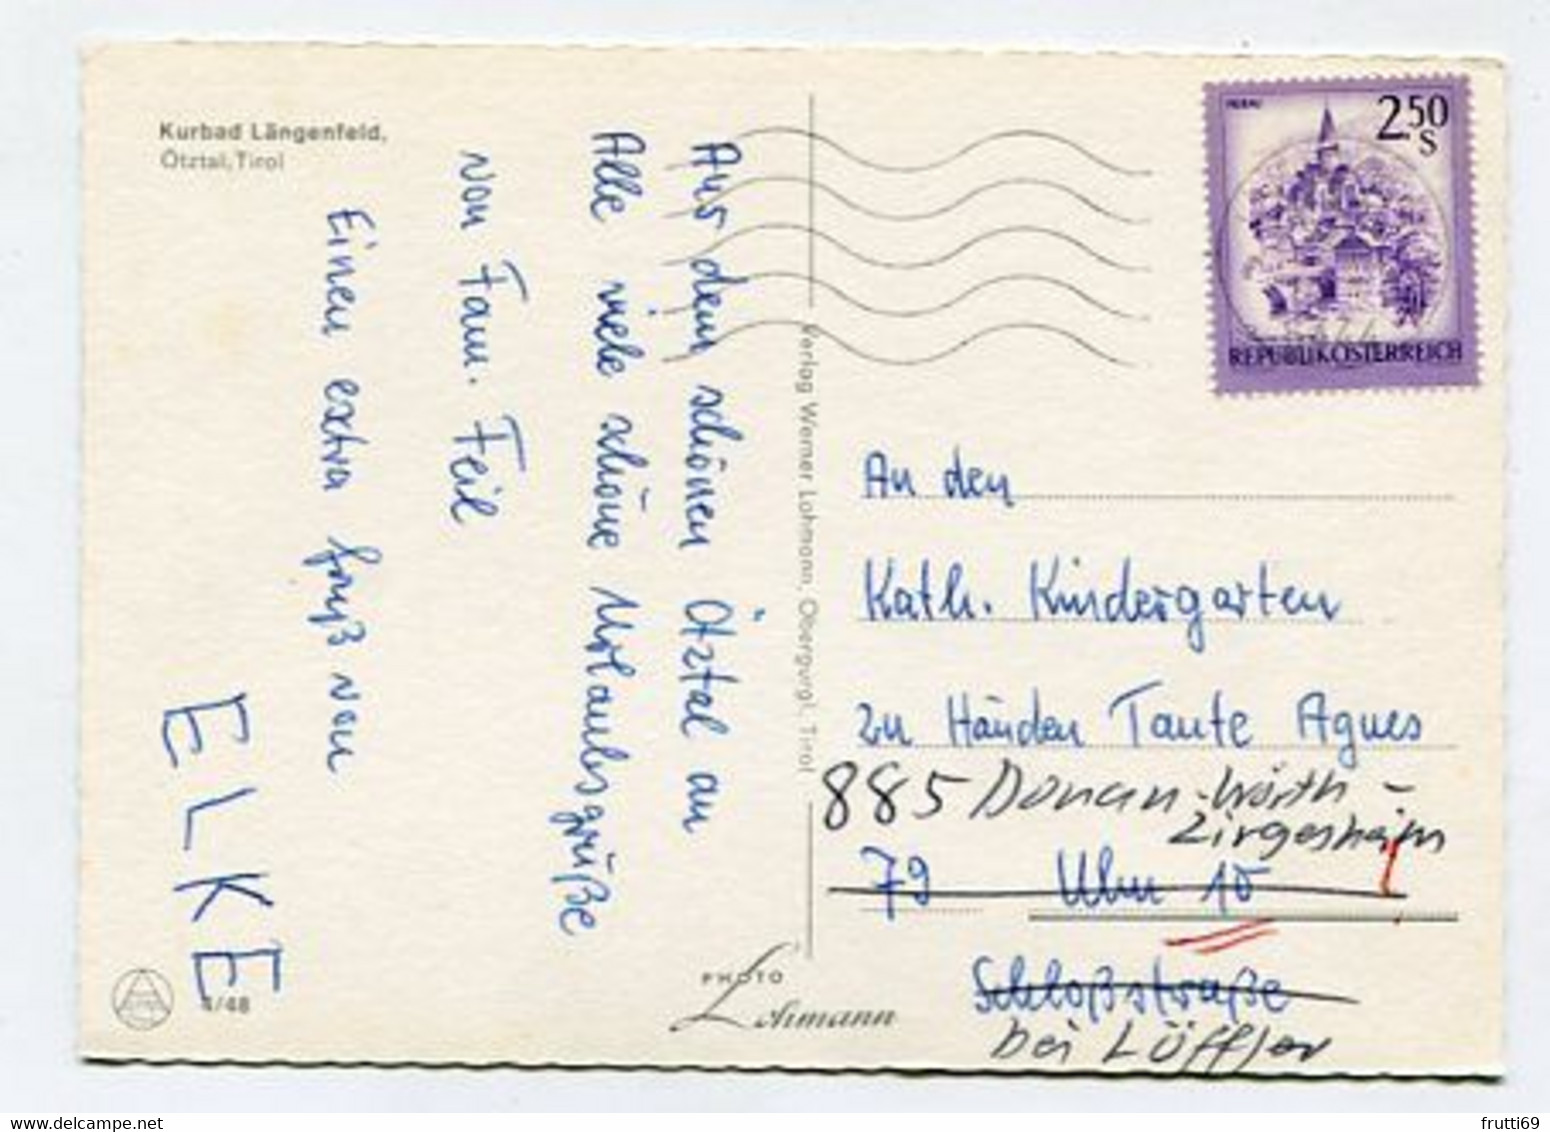 Kurbad Längenfeld,
Ötztal, Tirol
Aus dem schönen Ötztal an
Alle viele schöne Urlaubsgrüße
von Fam. Feil
Einen extra Gruß von
ELKE
4/48
Verlag Werner Lohmann, Obergurgl, Tirol
PHOTO
Lohmann
2.50
S
REPUBLIK ÖSTERREICH
An den
Kath. Kindergarten
zu Händen Tante Agnes
885 Donau-Wörth -
Zirgesheim
79 Ulm 10
Schloßstraße
bei Löffler
frutti69